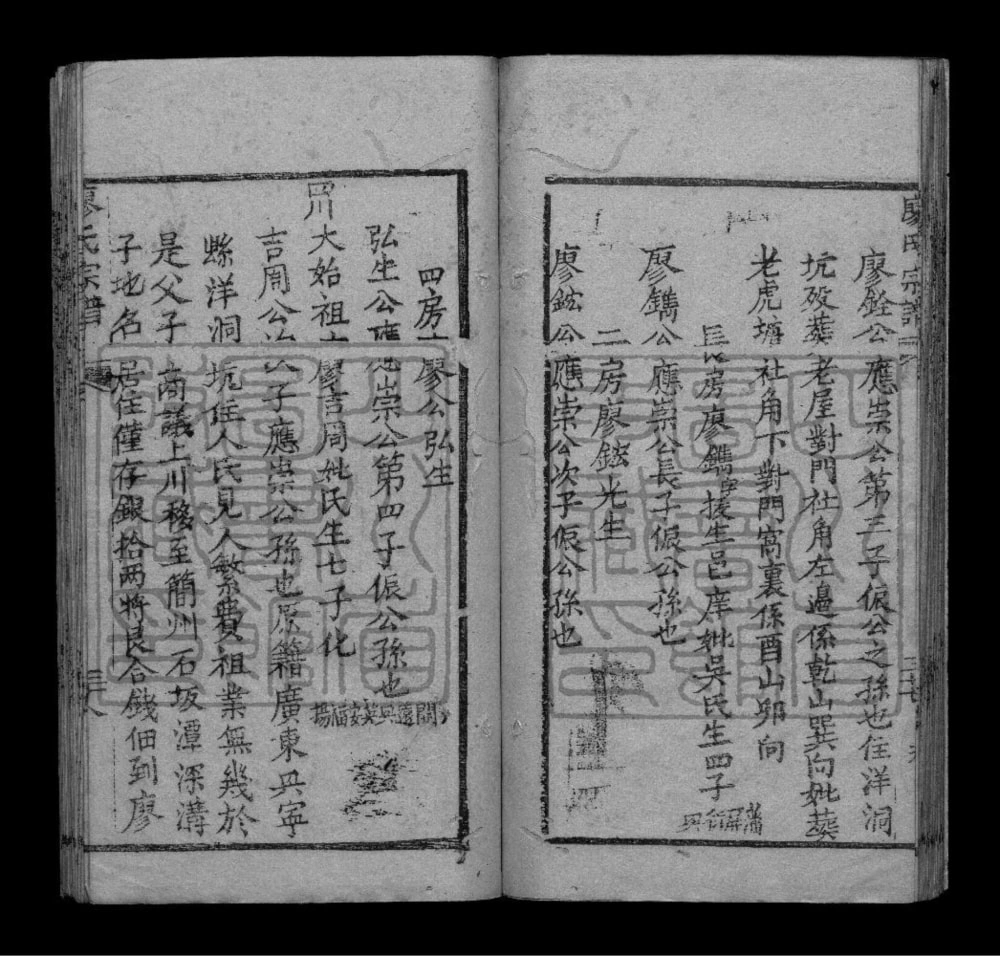 廖銓公應崇公第三子倀公之孫也住洋洞
坑歿葬老屋對門社角左邊係乾山巽向妣葬
老虎塘社角下對門窩裏係酉山卯向
長房廖鐫字援生邑庠妣吳氏生四子
廖鐫公應崇公長子倀公孫也
二房廖鋐光生
廖鋐公應崇公次子倀公孫也
廖氏宗譜
四房廖公弘生
弘生公應崇公第四子倀公孫也
川大始祖廖吉周妣氏生七子化
吉周公次子應崇公孫也原籍廣東興寧
縣洋洞坑住人氏見人繁費祖業無幾於
是父子商議上川移至簡州石坂潭深溝
子地名居住僅存銀拾兩將艮合錢佃到廖
廖氏宗譜